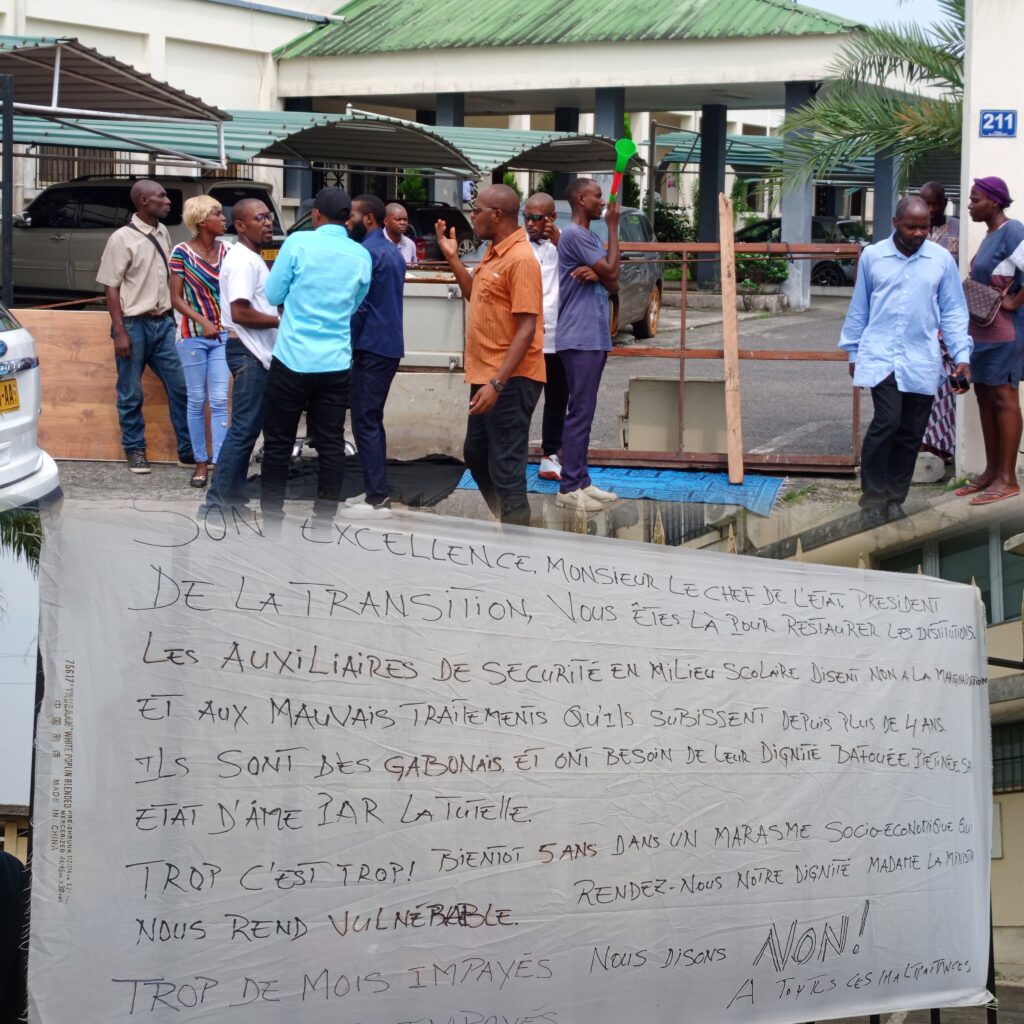 211
-AA
SON EXCELLENCE, MONSIEUR LE CHEF DE L'ÉTAT, PRESIDENT
DE LA TRANSITION, VOUS ÊTES LÀ POUR RESTAURER LES INSTITUTIONS.
LES AUXILIAIRES DE SECURITÉ EN MILIEU SCOLAIRE DISENT NON A LA MARGINALISATION
ET AUX MAUVAIS TRAITEMENTS QU'ILS SUBISSENT DEPUIS PLUS DE 4 ANS.
ILS SONT DES GABONAIS, ET ONT BESOIN DE LEUR DIGNITÉ BAFOUÉE, PIETINÉE
ETAT D'ÂME PAR LA TUTELLE.
TROP C'EST TROP! BIENTOT 5 ANS DANS UN MARASME SOCIO-ECONOMIQUE QUI
NOUS REND VULNÉRABLE. RENDEZ-NOUS NOTRE DIGNITÉ MADAME LA MINISTRE
TROP DE MOIS IMPAYÉS NOUS DISONS NON!
A TOUTES CES MALTRAITANCES
IMPAYÉS
75617 "WHITE POPLIN BLENDED PRE-SHRUNK
MERCERIZED 44/45
中国 MADE IN CHINA